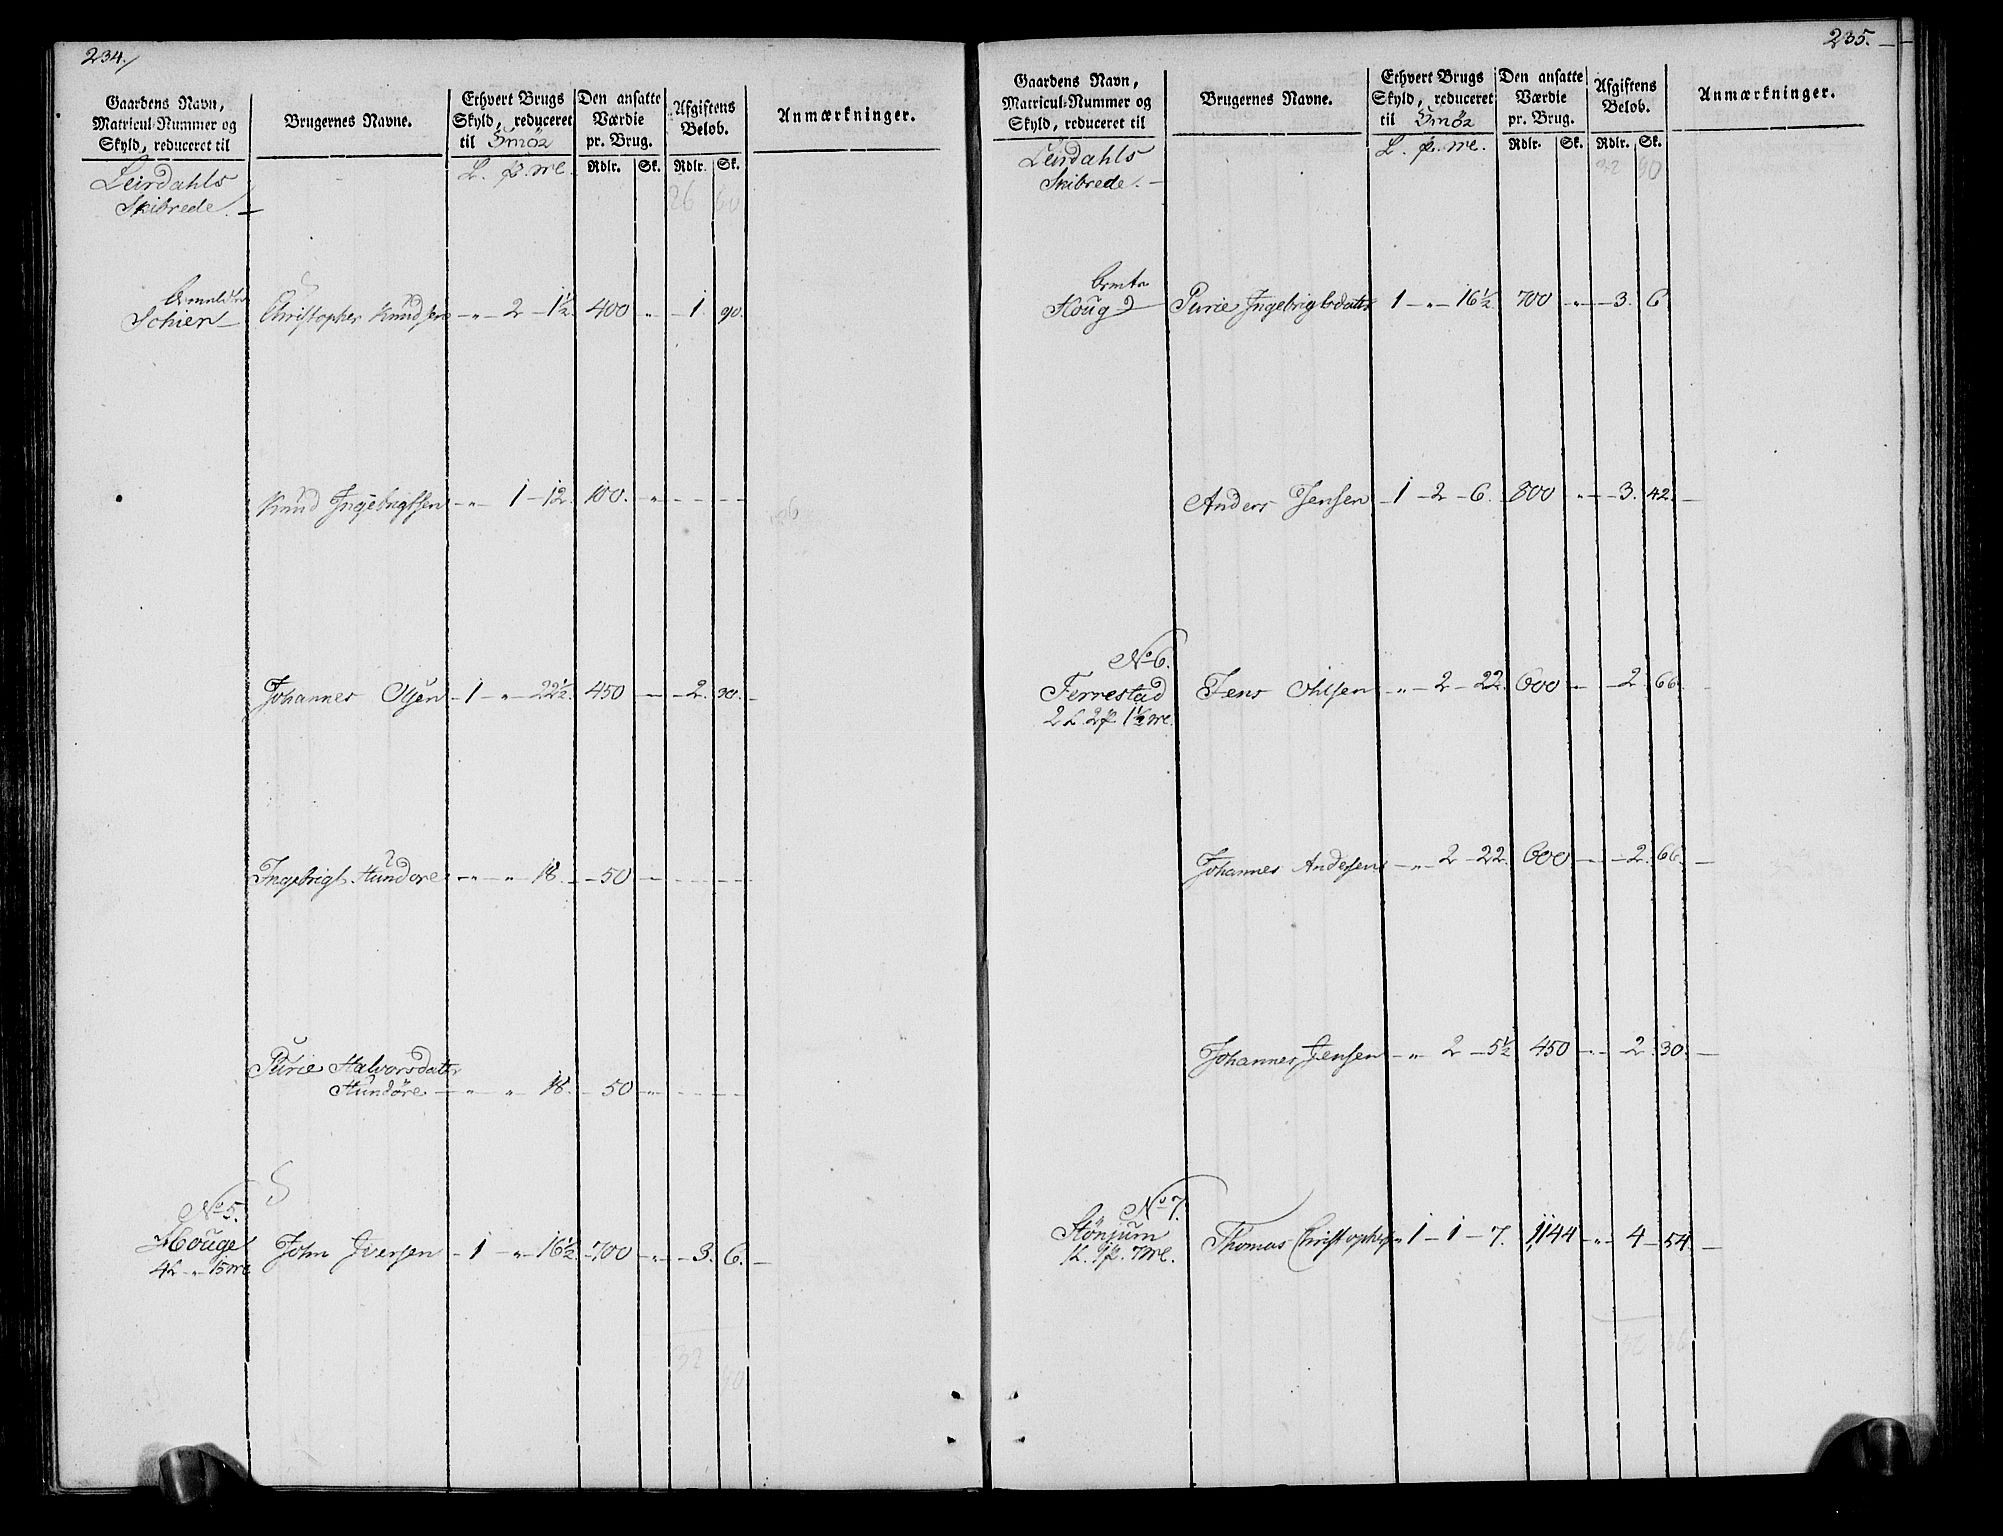 234./
Gaardens Navn,
Matricul-Nummer og
Skyld, reduceret til
Brugernes Navne.
Ethvert Brugs
Skyld, reduceret
til Smör
L. p. me.
Den ansatte
Værdie
pr. Brug.
Rdlr. Sk.
Afgiftens
Belob.
Rdlr. Sk.
Anmærkninger.
Leirdahls
Skibrede. —
26 60
Schier —
Christopher Knudsen — „ 2 — 1½. 400 „ — 1. 90.
Knud Ingebrigtsen — „ 1 — 12. 100. „ — — — —
Johannes Olsen — 1 „ — 22½. 450 — — 2. 30. —
Ingebrigt Hundere — „ — „ 18. — 50 — — — — —
Purie Halvorsdatter
Hundöre — „ — „ 18. — 50 — „ — — — —
No 5.
Houge
4 L „ 15 me
John Iversen — 1 — „ 16½. — 700 — „ — 3. 6. —
32
235. —
Gaardens Navn,
Matricul-Nummer og
Skyld, reduceret til
Brugernes Navne.
Ethvert Brugs
Skyld, reduceret
til Smör
L. p. me.
Den ansatte
Værdie
pr. Brug.
Rdlr. Sk.
Afgiftens
Belob.
Rdlr. Sk.
Anmærkninger.
Leirdahls
Skibrede. —
32 90
Houg
Purie Ingebrigtsdatter 1 — „ — 16½. 700 „ — 3. 6
Anders Jensen — 1 — 2 — 6. 800 „ — 3. 42. —
No 6.
Ferrestad
2 L. 2 p. 1½ me.
Jens Ohlsen — „ — 2 — 22. 600 — „ — 2. 66. —
Johannes Andersen — „ — 2 — 22. 600 — „ — 2. 66. —
Johannes Jensen — „ — 2 — 5½ 450 — „ — 2. 30. —
No 7.
Stönjum
1 L. 1 p. 7 me.
Thomas Christophers „ 1 — 1 — 7. 1144 — „ — 4 — 54. —